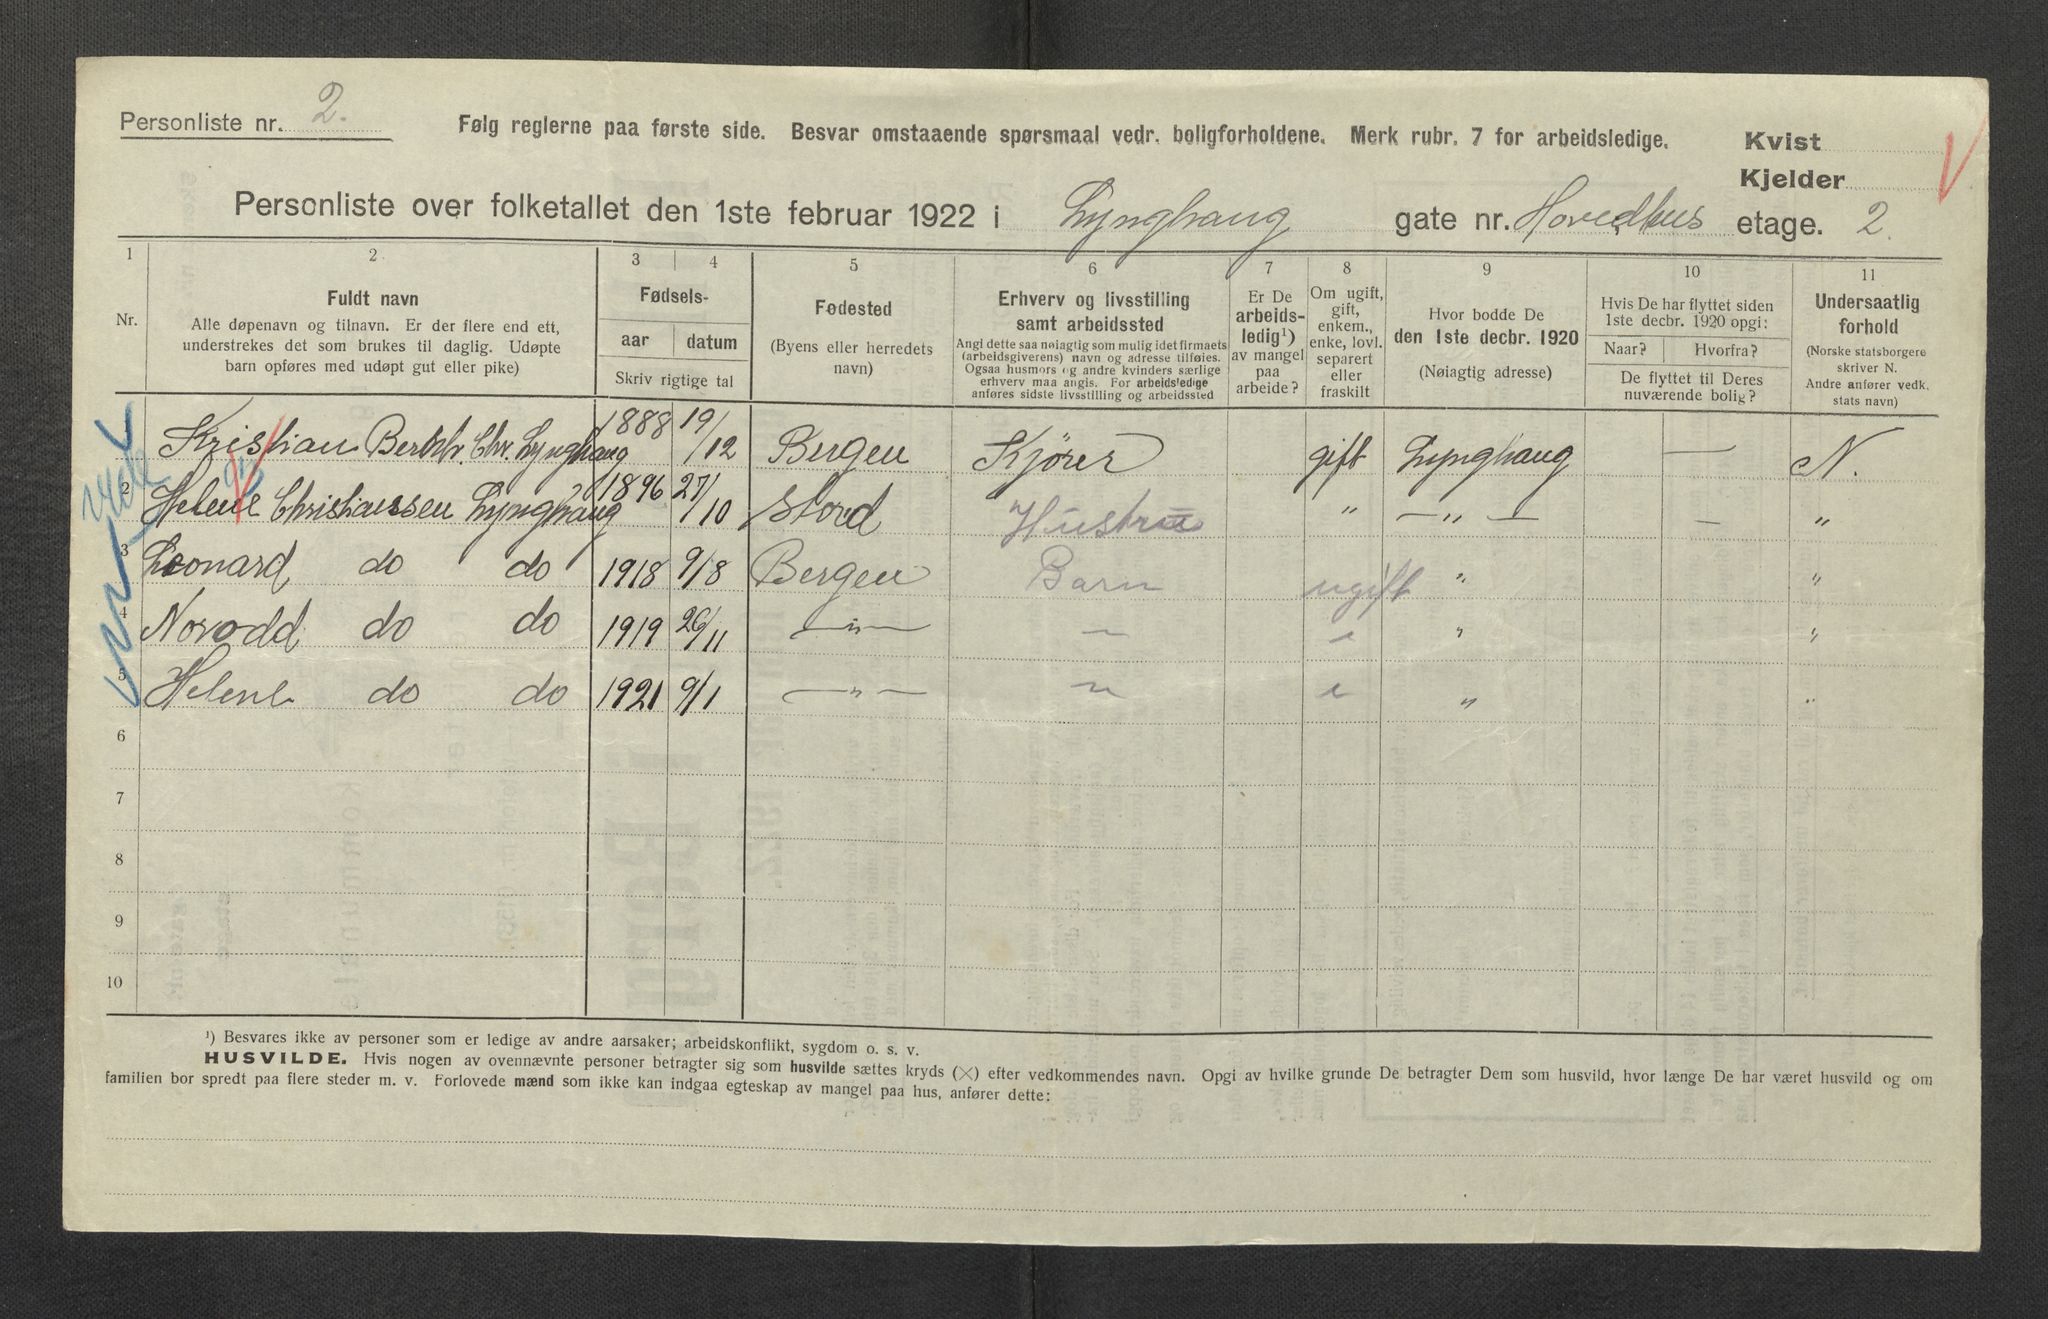 Personliste nr. 2.
Følg reglerne paa første side. Besvar omstaaende spørsmaal vedr. boligforholdene. Merk rubr. 7 for arbeidsledige.
Kvist
Kjelder
Personliste over folketallet den 1ste februar 1922 i Lynghaug gate nr. Hovedhus etage. 2.
1 2 3 4 5 6 7 8 9 10 11
Nr.
Fuldt navn
Alle døpenavn og tilnavn. Er der flere end ett,
understrekes det som brukes til daglig. Udøpte
barn opføres med udøpt gut eller pike)
Fødsels-
aar datum
Skriv rigtige tal
Fødested
(Byens eller herredets
navn)
Erhverv og livsstilling
samt arbeidssted
Angi dette saa nøiagtig som mulig idet firmaets
(arbeidsgiverens) navn og adresse tilføies.
Ogsaa husmors og andre kvinders særlige
erhverv maa angis. For arbeidsledige
anføres sidste livsstilling og arbeidssted
Er De
arbeids-
ledig¹)
av mangel
paa
arbeide?
Om ugift,
gift,
enkem.,
enke, lovl.
separert
eller
fraskilt
Hvor bodde De
den 1ste decbr. 1920
(Nøiagtig adresse)
Hvis De har flyttet siden
1ste decbr. 1920 opgi:
Naar? Hvorfra?
De flyttet til Deres
nuværende bolig?
Undersaatlig
forhold
(Norske statsborgere
skriver N.
Andre anfører vedk.
stats navn)
Kristian Chr. Lynghaug 1888 19/12 Bergen Kjører gift Lynghaug — N.
2 Helene Christiansen Lynghaug 1896 27/10 Stord Hustru " —"— — "
3 Leonard do do 1918 9/8 Bergen Barn ugift " "
4 Norodd do do 1919 26/11 —"— " " " "
5 Helene do do 1921 9/1 —"— " " " "
6
7
8
9
10
¹) Besvares ikke av personer som er ledige av andre aarsaker; arbeidskonflikt, sygdom o. s. v.
HUSVILDE. Hvis nogen av ovennævnte personer betragter sig som husvilde sættes kryds (×) efter vedkommendes navn. Opgi av hvilke grunde De betragter Dem som husvild, hvor længe De har været husvild og om
familien bor spredt paa flere steder m. v. Forlovede mænd som ikke kan indgaa egteskap av mangel paa hus, anfører dette: